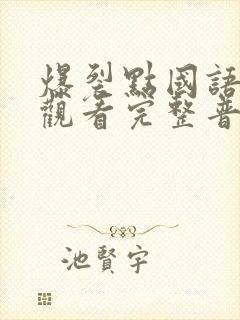 爆裂點國語
觀看完整普
池賢宇